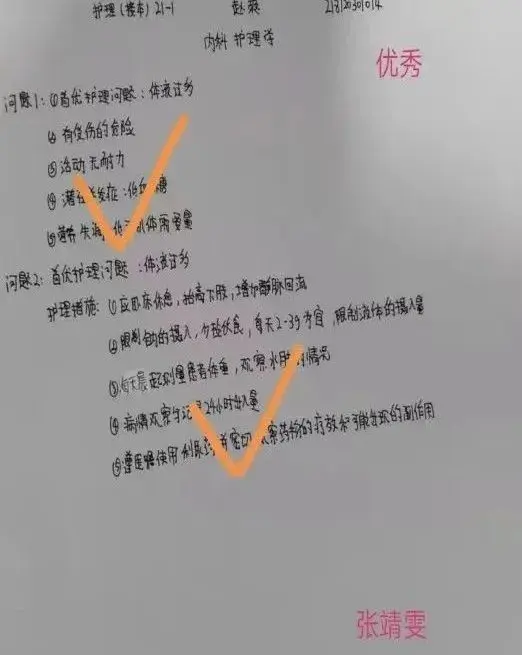 护理(接本)21-1 赵爽
内科护理学
优秀
问题1:①首优护理问题:体液过多
②有受伤的危险
③活动无耐力
④潜在并发症:低血糖
⑤营养失调:低于机体需要量
问题2:首优护理问题:体液过多
护理措施:①应卧床休息,抬高下肢,增加静脉回流
②限制钠的摄入,少盐饮食,每天2-3g为宜,限制液体的摄入量
③每天晨起测量患者体重,观察水肿的情况
④病情观察与记录24小时出入量
⑤遵医嘱使用利尿药并密切观察药物的疗效和可能出现的副作用
张靖雯